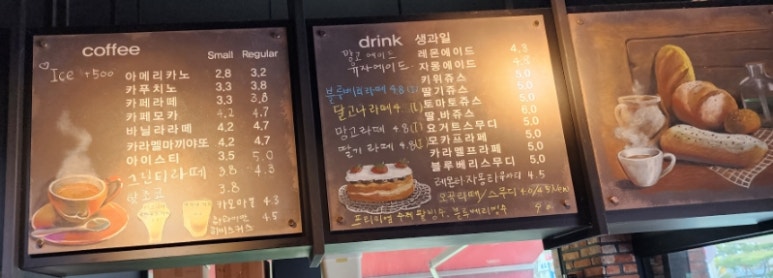 coffee
Small Regular
Ice +500
아메리카노 2,8 3,2
카푸치노 3,3 3,8
카페라떼 3,3 3,8
카페모카 4.2 4.7
바닐라라떼 4,2 4,7
카라멜마끼야또 4,2 4.7
아이스티 3.5 5.0
그린티라떼 3.8 4.3
3.8
4.3
4.5
drink 생과일
망고에이드 레몬에이드 4.3
유자에이드 자몽에이드 4.8
키위쥬스 5.0
블루베리라떼 4.8 딸기쥬스 5.0
달고나라떼 4 토마토쥬스 5.0
딸.바쥬스 6.0
망고라떼 4.8 (I) 요거트스무디 5.0
딸기라떼 4.8 모카프라페 5.0
카라멜프라페 5.0
블루베리스무디 5.0
4.5
오곡라떼/스무디